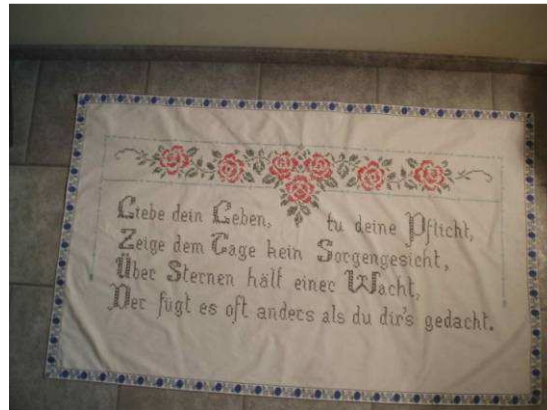 Liebe dein Leben, tu deine Pflicht,
Zeige dem Tage kein Sorgengesicht,
Über Sternen hält einer Wacht,
Der fügt es oft anders als du dir's gedacht.